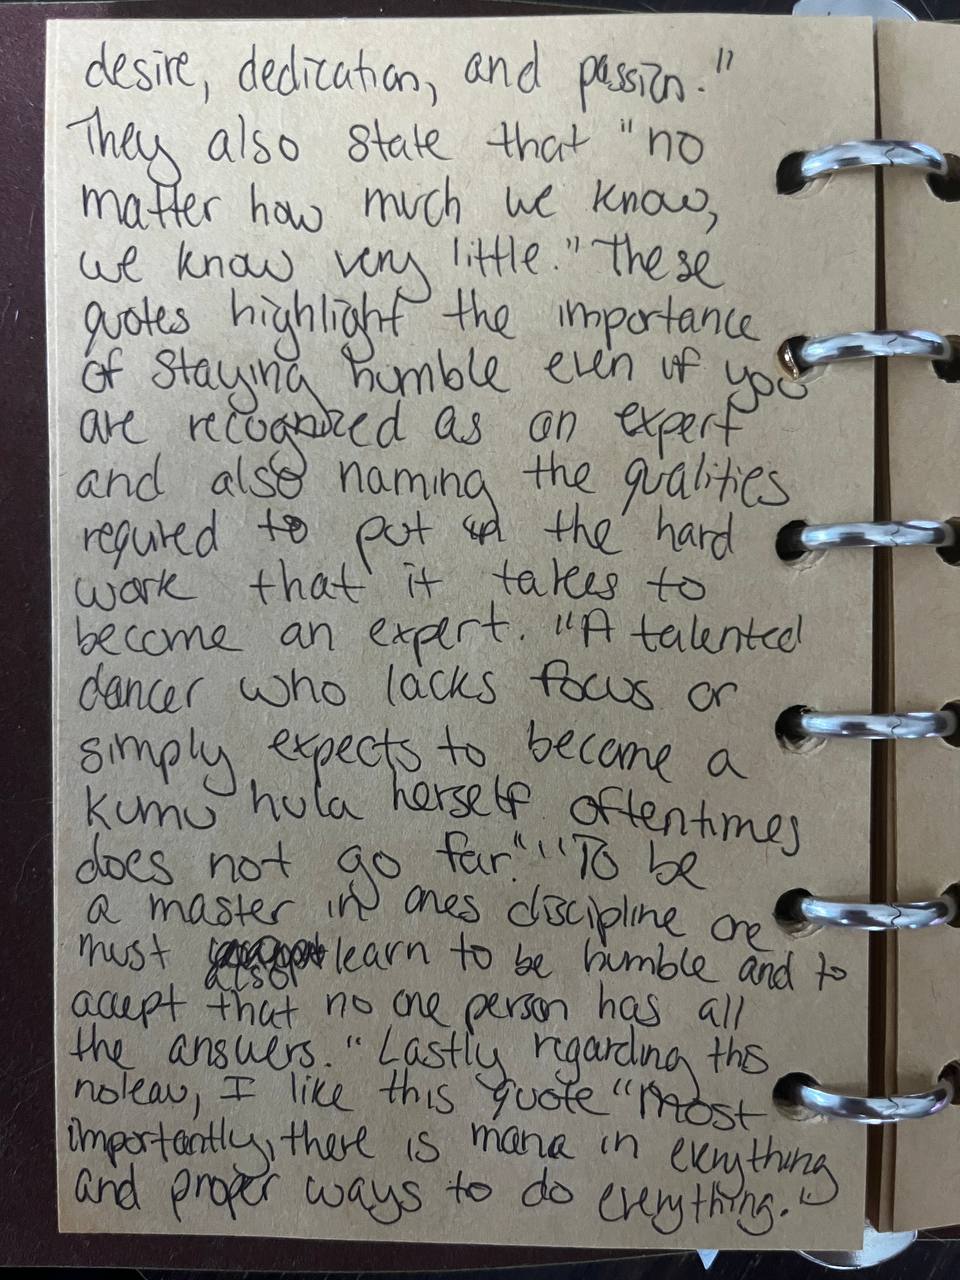 desire, dedication, and passion."
They also state that "no
matter how much we know,
we know very little." These
quotes highlight the importance
of staying humble even if you
are recognized as an expert
and also naming the qualities
required to put in the hard
work that it takes to
become an expert. "A talented
dancer who lacks focus or
simply expects to become a
kumu hula herself oftentimes
does not go far." "To be
a master in ones discipline one
must learn to be humble and to
also
accept that no one person has all
the answers." Lastly regarding this
noleau, I like this quote "Most
importantly, there is mana in everything
and proper ways to do everything."